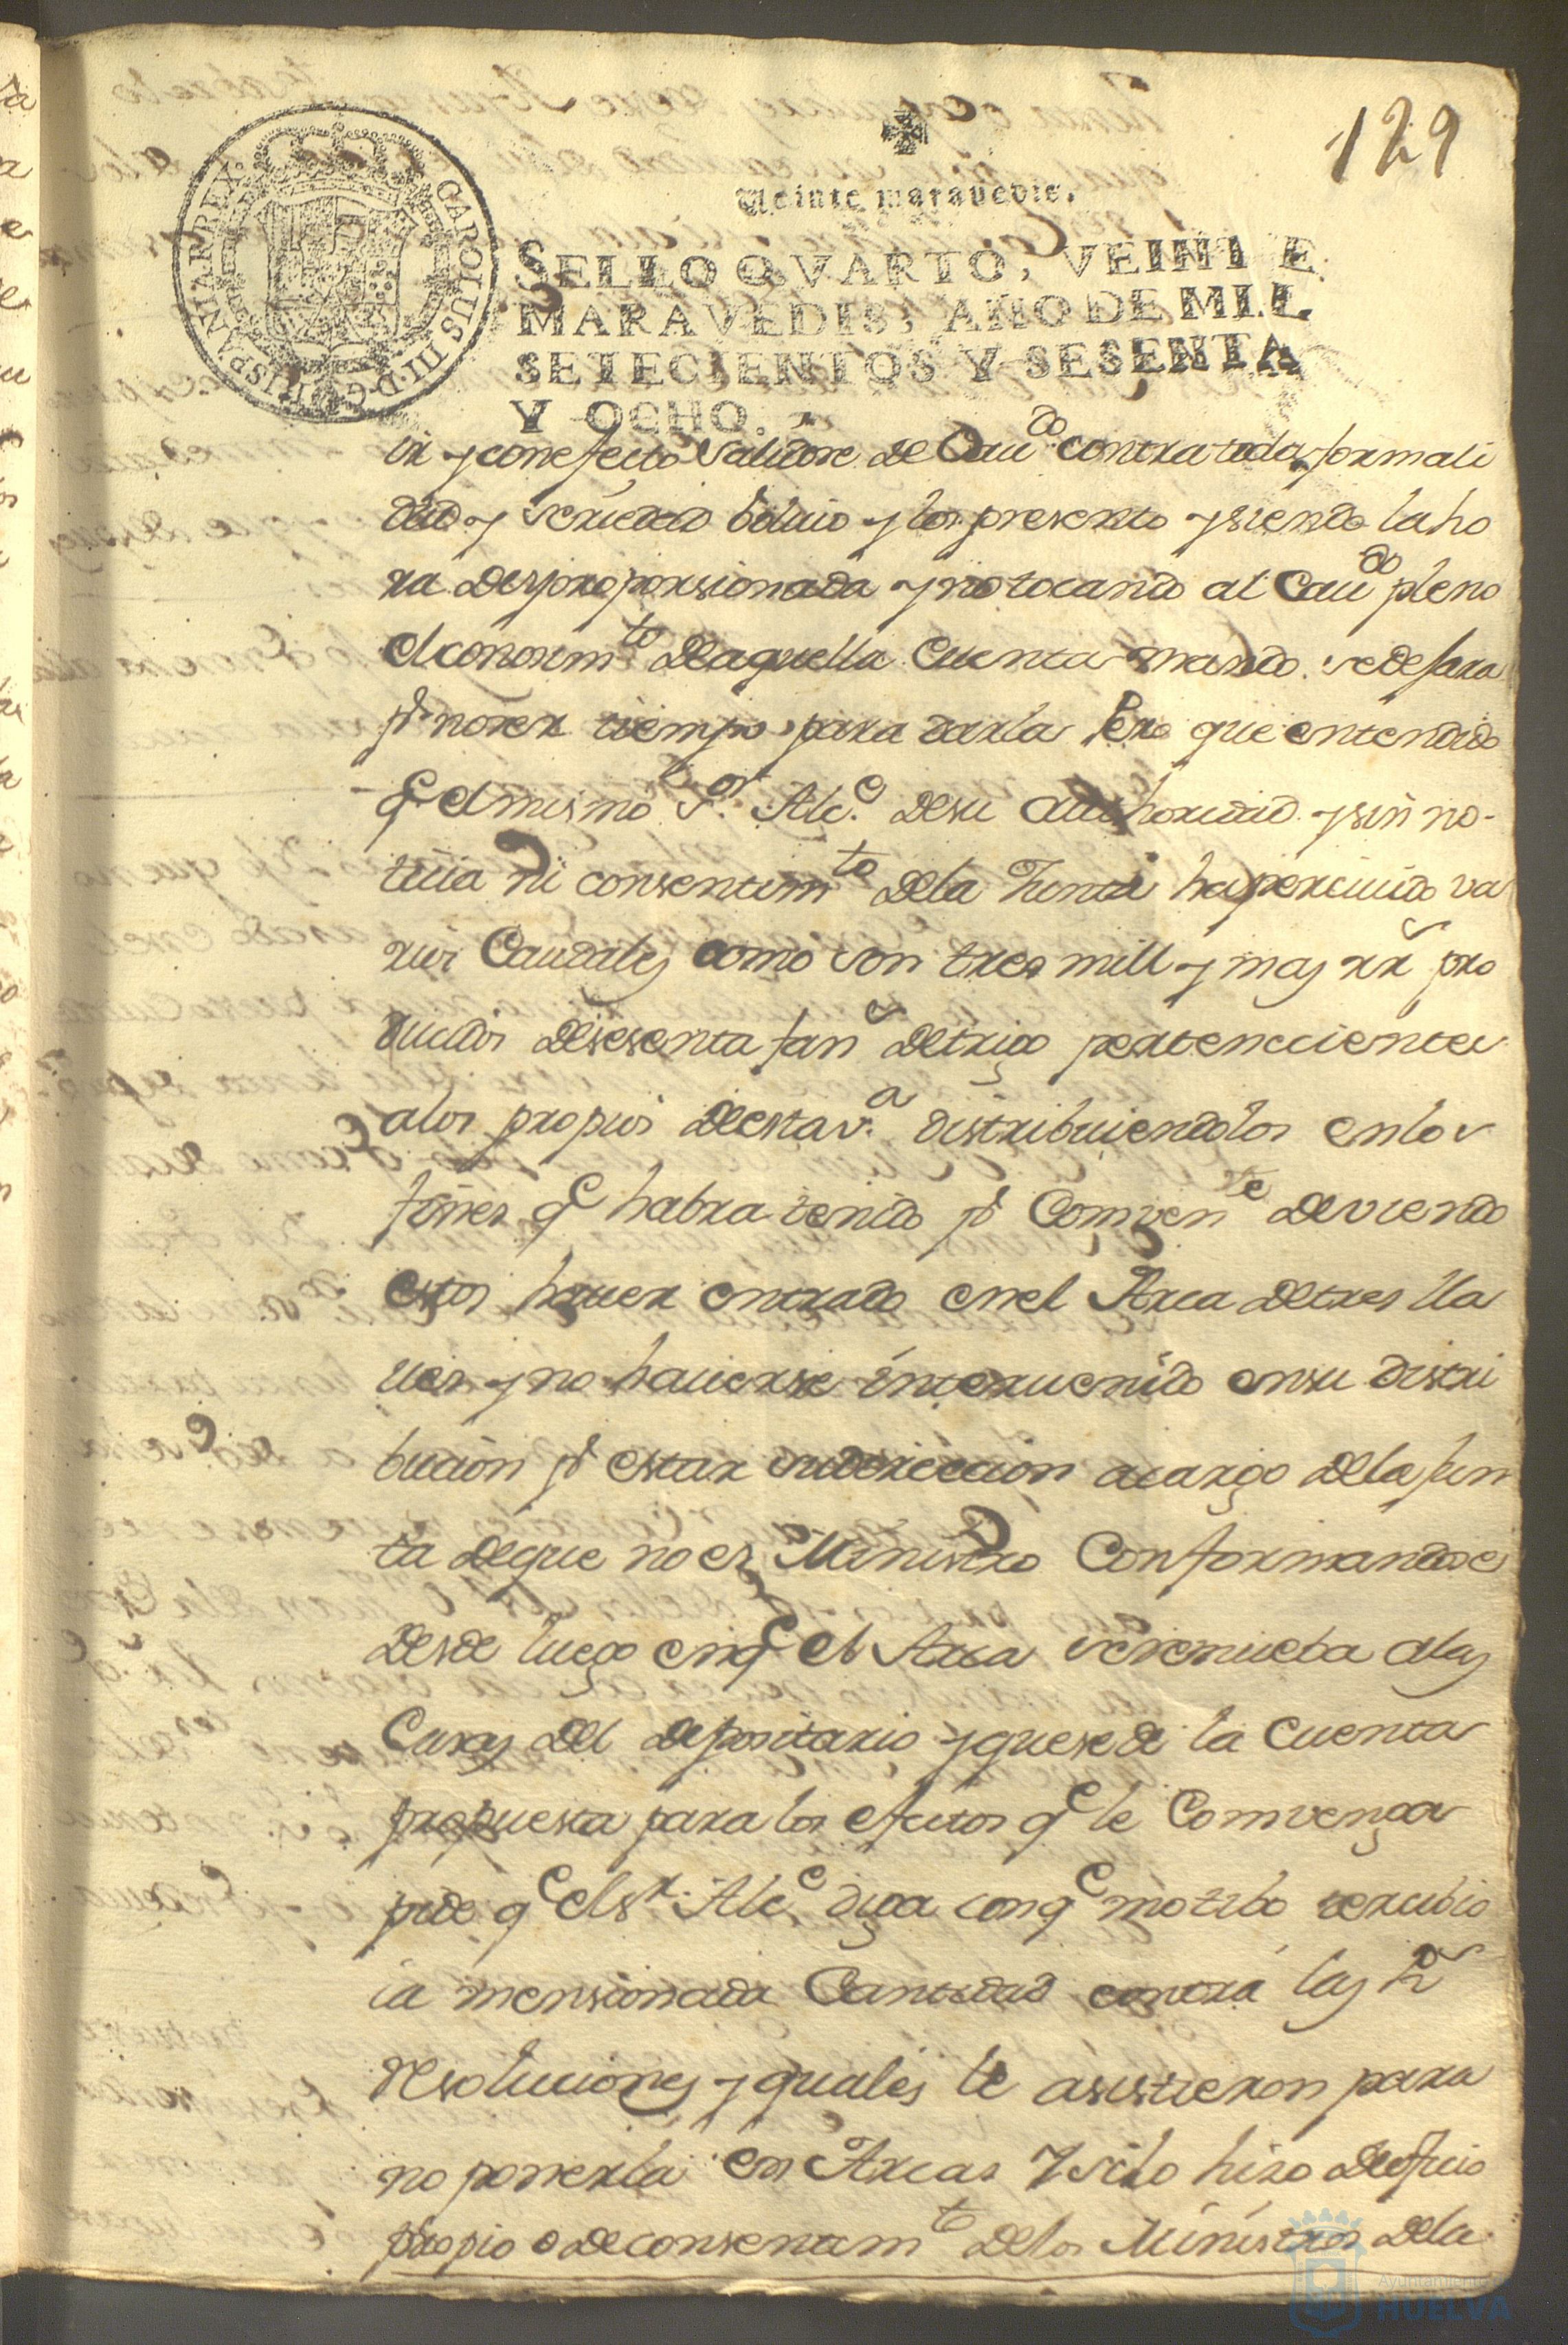 129
Veinte maravedis.
SELLO QVARTO, VEINTE
MARAVEDIS, AÑO DE MIL
SETECIENTOS Y SESENTA
Y OCHO.
CAROLUS III D G HISPANIAR REX
ir y con efecto salidose de Cau.do contra toda formali
dad y seriedad bolvio y los presento y siendo la ho
ra desproporsionada y no tocando al Cau.do pleno
el conosim.to de aquella Cuenta mando se dejara
p.r no ser tiempo para darla Pero que entendido
q.e el mismo S.or Alc.e de su authoridad y sin no-
ticia ni consentim.to de la Junta ha perciuido va
rios Caudales como son tres mill y mas rr.s pro
ducidos de sesenta fan.s de trigo pertenecientes
a los propios de esta v.a distribuiendolos en los
fines q.e habra tenido p.r Comven.te deviendo
estos hauer entrado en el Arca de tres lla
ues y no hauerse interuenido en su distri
bucion p.r estar su direccion a cargo de la Jun
ta de que no es Ministro Conformandose
desde luego en q.e el Arca se remueba a las
Casas del depositario y que se dé la Cuenta
propuesta para los efectos q.e le Comvenga
pide q.e el s.r Alc.e diga con q.e motibo rerubio
la mensionada Cantidad contra las R.s
resoluciones y quales le asistieron para
no ponerla en Arcas Y si lo hizo de oficio
propio o de consentim.to de los Ministros de la
Ayuntamiento
HUELVA